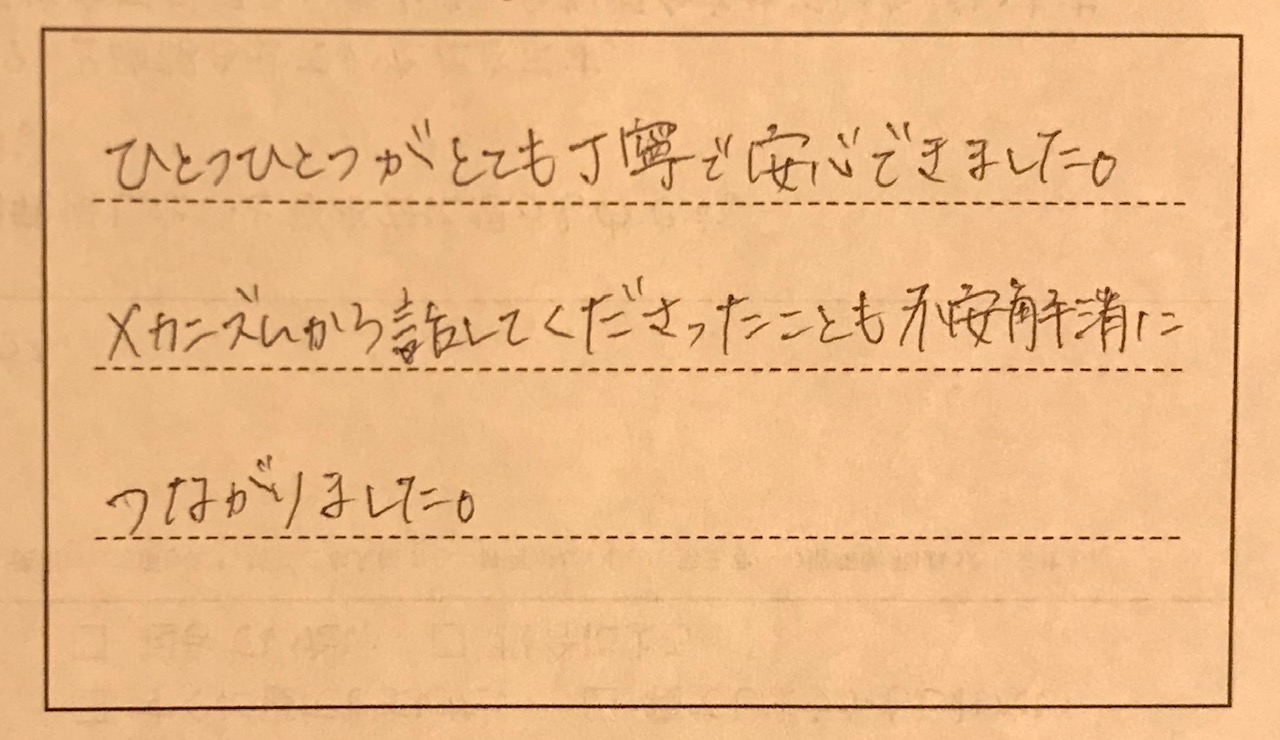 ひとつひとつがとても丁寧で安心できました。
メカニズムから話してくださったことも不安解消に
つながりました。